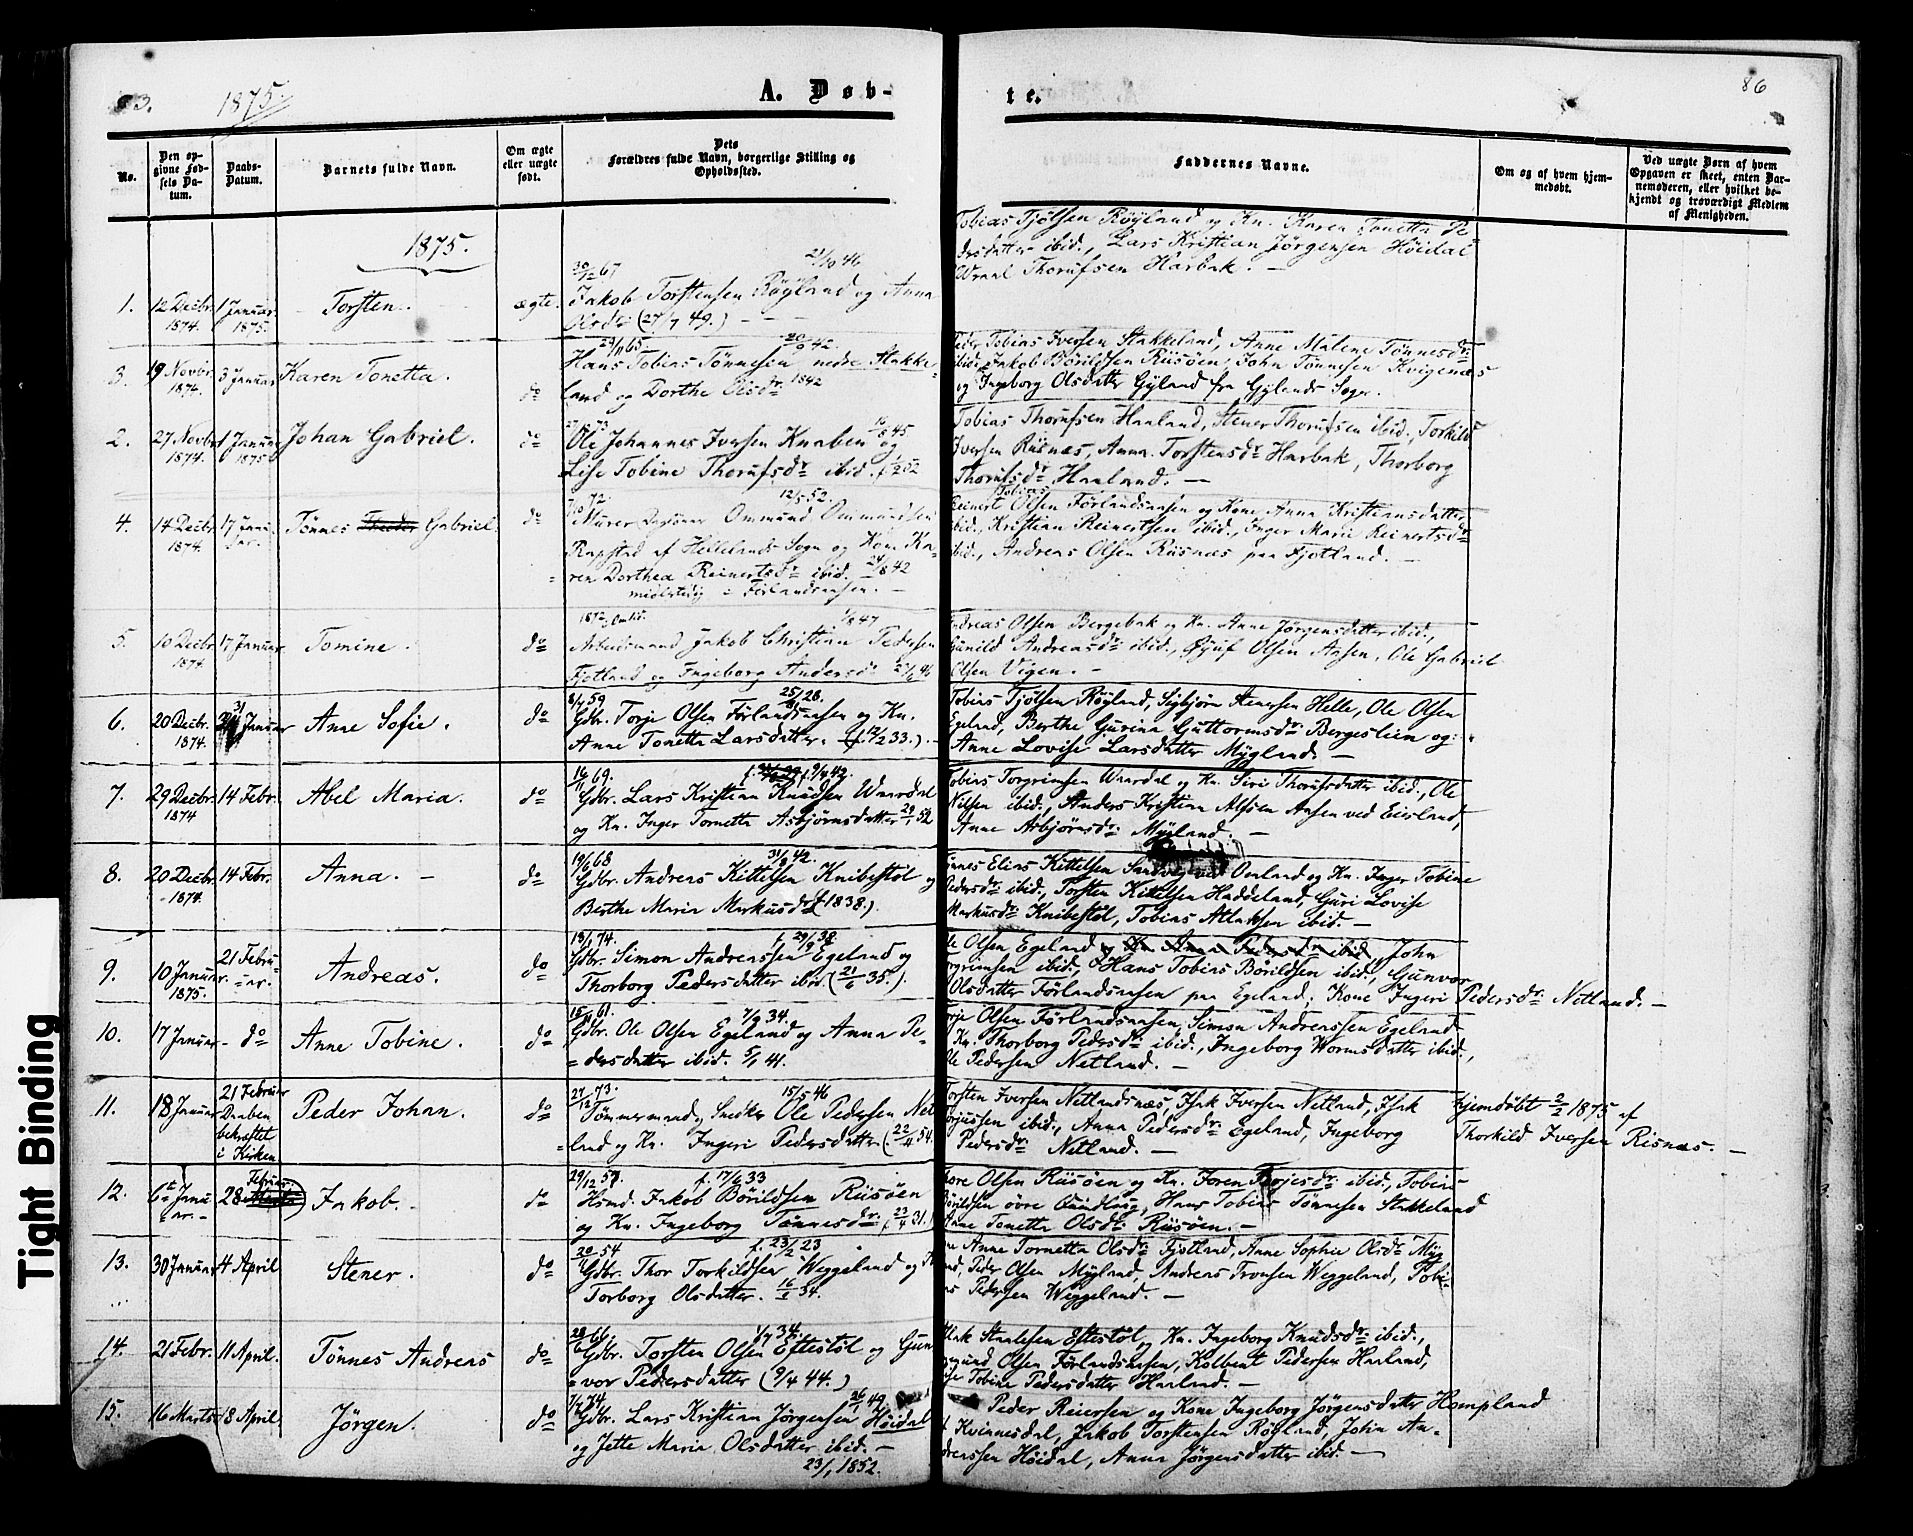 1875.
A. Døb-
te.
86
No.
Den op-
givne Fød-
sels Da-
tum.
Daabs-
Datum.
Barnets fulde Navn.
Om ægte
eller uægte
født.
Dets
Forældres fulde Navn, borgerlige Stilling og
Opholdssted.
Faddernes Navne.
Om og af hvem hjem-
medøbt.
Ved uægte Børn af hvem
Opgaven er skeet, enten Bar-
nemoderen, eller hvilket be-
kjendt og troværdigt Medlem
af Menigheden.
1875.
1. 12 Decbr. 1874. 1 Januar 1875. Torsten. ægte.
30/12 67
Jakob Torstensen Röyland og Anna
Olsdr. (27/7 49.)
Tobias Tjölsen Röyland og Kn. Karen Tonetta Pe
dersdatter ibid., Lars Kristian Jörgensen Höidal
Thorufsen Harbak. —
3. 19 Novbr. 1874. 3 Januar Karen Tonetta. do
29/11 65. 20/9 42.
Hans Tobias Tönnesen nedre Stakke-
land og Dorthe Olsdr. 1842
Peder Tobias Iversen Stakkeland, Anne Malene Tönnesdr.
ibid., Jakob Börildsen Rüsöen, John Tönnesen Kvigenæs
og Ingeborg Olsdatter Gyland fra Gylands Sogn.
2. 27 Novbr. 1874. 1 Januar 1875 Johan Gabriel. do
Ole Johannes Iversen Knaben og
Lise Tobine Thorufsdr. ibid.
Tobias Thorufsen Haaland, Stener Thorufsen ibid., Torkild
Iversen Rüsnæs, Anna Torstensdr. Harbak, Thorborg
Thorufsdr. Haaland. —
4. 14 Decbr. 1874. 17 Janu- ar. Tönnes Gabriel. do
12/5 52.
Murer Ommund Ommundsen
Rapstad af Hellelands Sogn og Kone Ka-
ren Dorthea Reinertsdr. ibid. 24/8 42
midlertidig i Förlandsaasen. —
Tobias
Reinert Olsen Förlandsaasen og Kone Anna Kristiansdatter
ibid., Kristian Reinertsen ibid., Inger Marie Reinertsdr.
ibid., Andreas Olsen Rüsnæs paa Fjotland. —
5. 10 Decbr. 1874. 17 Januar Tomine. do
1/8 47
Arbeidsmand Jakob Christian Pedersen
Fjotland og Ingeborg Andersdr.
Andreas Olsen Bergebak og Kn. Anne Jörgensdatter ibid.,
Gunild Andreasdr. ibid., Olsen Aasen, Ole Gabriel
Olsen Vigen. —
6. 20 Decbr. 1874. 31 Januar Anne Sofie. do
8/7 59 25/8 28.
Gdbr. Torje Olsen Förlandsaasen og Kn.
Anne Tonetta Larsdatter. (f. 12/2 33.). —
Tobias Tjölsen Röyland, Sigbjörn Stenersen Helle, Ole Olsen
Egeland, Berthe Gurina Guttormsdr. Bergesteen og
Anne Lovise Larsdatter Mygland. —
7. 29 Decbr. 1874 14 Febr. Abel Maria. do
16/11 69. f. 9/4 42.
Gdbr. Lars Kristian Knudsen Waardal
og Kn. Inger Tornetta Asbjörnsdatter 29/1 52
Tobias Torgrimsen Waardal og Kn. Siri Thorufsdatter ibid., Ole
Nilsen ibid., Anders Kristian Alfsen Aasen ved Eiesland,
Anne Asbjörnsdr. Mygland. —
8. 20 Decbr. 1874. 14 Febr. Anna. — do
19/6 68 31/8 42.
Gdbr. Andreas Kittelsen Knibestöl og
Berthe Maria Markusdr. (f. 1838.).
Tönnes Elias Kittelsen Omland og Kn. Inger Tobine
Pedersdr. ibid., Torsten Kittelsen Haddeland, Guri Lovise
Markusdr. Knibestöl, Tobias Atlaksen ibid. —
9. 10 Januar 1875. 21 Februar. Andreas. do
13/1 74. f. 29/9 38.
Gdbr. Simon Andreassen Egeland og
Thorborg Pedersdatter ibid. (21/6 35.).
Ole Olsen Egeland og Kn. Anna Pedersdr. ibid., John
Torgrimsen ibid., Hans Tobias Börildsen ibid., Gunvor
Olsdatter Förlandsaasen paa Egeland, Kone Ingeri Pedersdr. Netland. —
10. 17 Januar - do Anne Tobine. do
7/9 34.
Gdbr. Ole Olsen Egeland og Anna Pe-
dersdatter ibid. 5/1 41.
Torje Olsen Förlandsaasen, Simon Andreassen Egeland
Kn. Thorborg Pedersdr. ibid., Ingeborg Wormsdatter ibid.,
Ole Pedersen Netland. —
11. 18 Januar 21 Februar Daaben bekræftet i Kirken Peder Johan. do
27/12 73. 15/5 46
Tömmermand, Snedker Ole Pedersen Net
land og Kn. Ingeri Pedersdatter (22/4 54.
Torsten Iversen Netlandsnæs, Isak Iversen Netland, Isak
Torjussen ibid., Anna Pedersdr. Egeland, Ingeborg
Pedersdr. Netland. —
Hjemdöbt 2/2 1875 af
Thorkild Iversen Risnæs. —
12. 6te Janu ar. 28 Februar Jakob. do
29/12 59. f. 17/6 33
Husmd. Jakob Börildsen Rüsöen
og Kn. Ingeborg Tönnesdr. (23/4 31.)
Tore Olsen Rüsöen og Kn. Joren Torjesdr. ibid., Tobias
Börildsen övre Qvindlaug, Hans Tobias Tönnesen Stakkeland
Anne Tonetta Olsdr. Rüsöen. —
13. 30 Januar 4 April Stener. do
f. 23/2 23
Gdbr. Thor Torkildsen Weggeland og
Torborg Olsdatter.
Anne Tornetta Olsdr. Fjotland, Anne Sophie Olsdr. Myg
land, Peder Olsen Mygland, Andreas Tronsen Weggeland, Tobi-
as Pedersen Weggeland. —
14. 21 Febr. 11 April. Tönnes Andreas do
1/7 34.
Gdbr. Torsten Olsen Eftestöl og Gun
vor Pedersdatter (9/4 44.)
Atlak Staalesen Eftestöl og Kn. Ingeborg Knudsdr. ibid.,
Olsen Förlandsaasen, Kolbent Pedersen Haaland,
Lise Tobine Pedersdatter Haaland. —
15. 16 Marts 18 April Jörgen. do
7/7 74. 26/1 49
Gdbr. Lars Kristian Jörgensen Höidal
og Jette Maria Olsdatter ibid. —
23/1 1852.
Peder Reiersen og Kone Ingeborg Jörgensdatter Hompland
i Kvinnesdal, Jakob Torstensen Röyland, John An-
dreassen Höidal, Anna Jörgensdatter ibid. —
Tight Binding